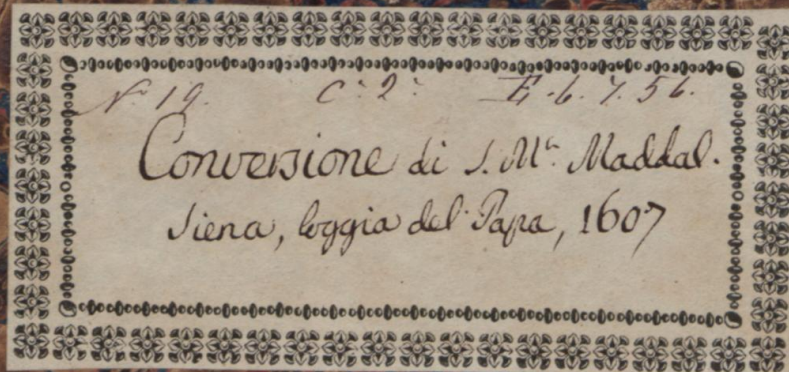 N. 19. C. 2. E. 6. 7. 56.
Conversione di S. Mª. Maddal.
Siena, loggia del Papa, 1607